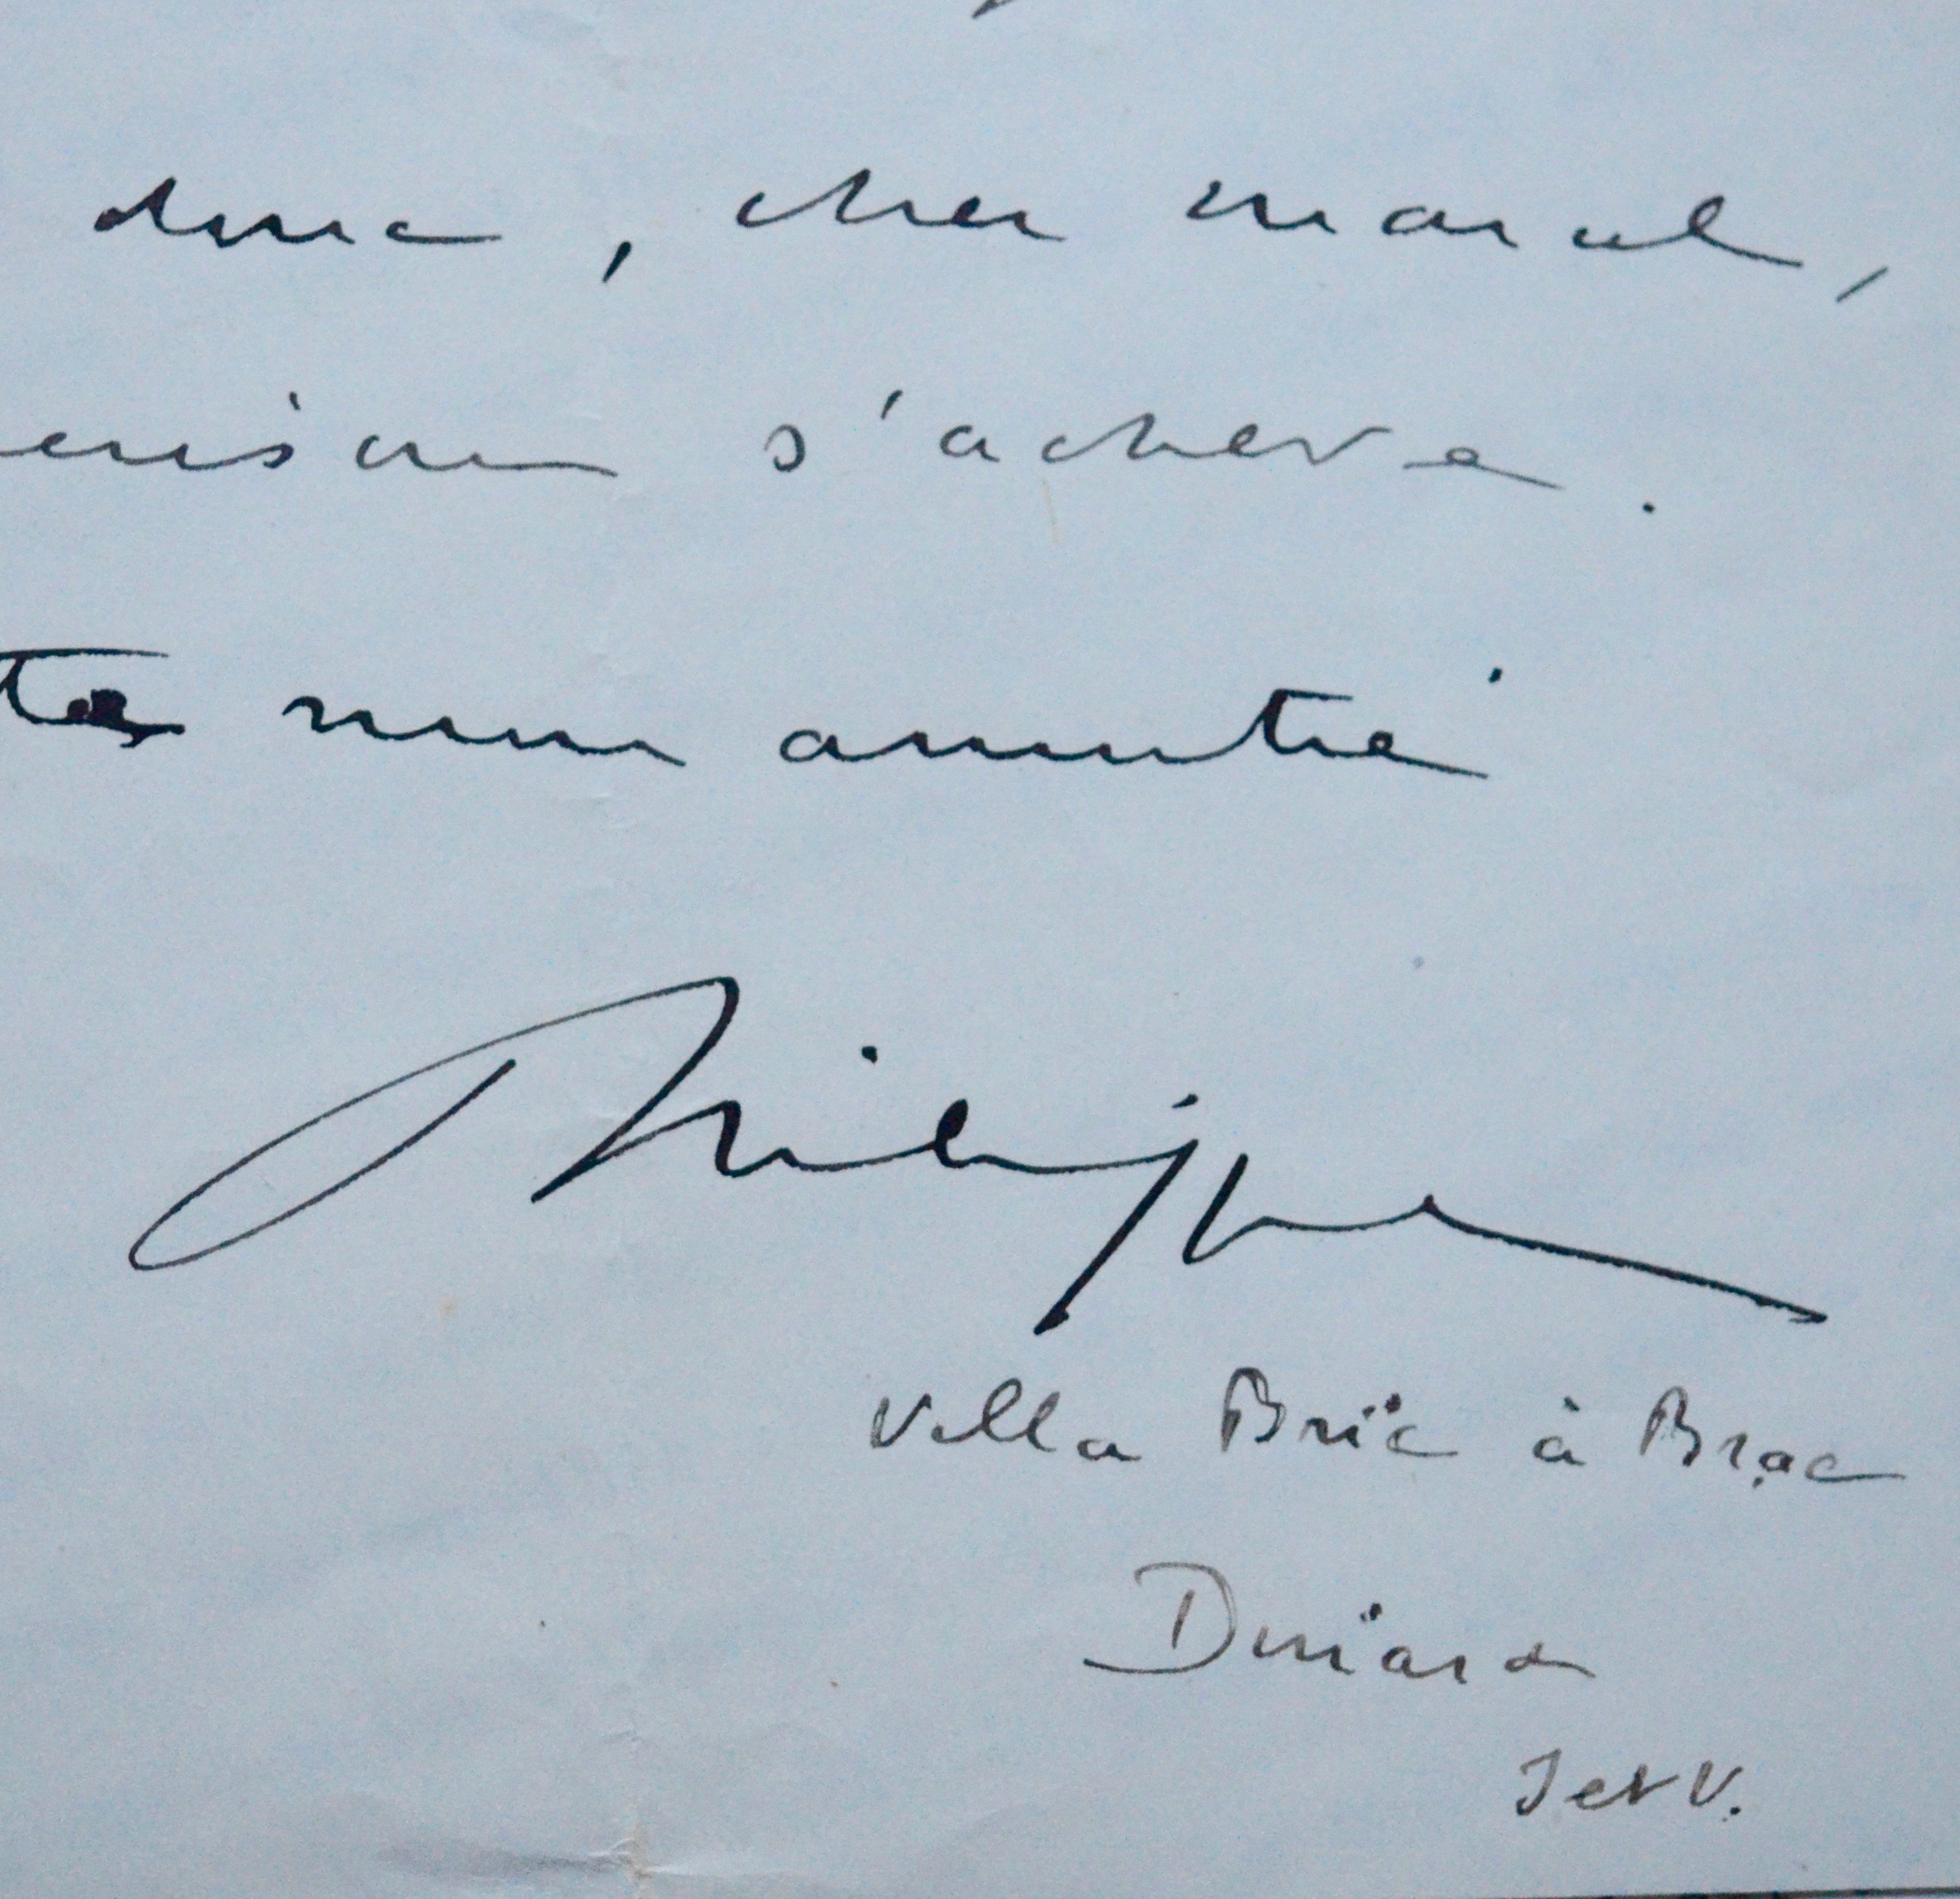 donc, cher Marcel,
s'achève.
mon amitié
Philippe
Villa Bric à Brac
Dinard
I et V.